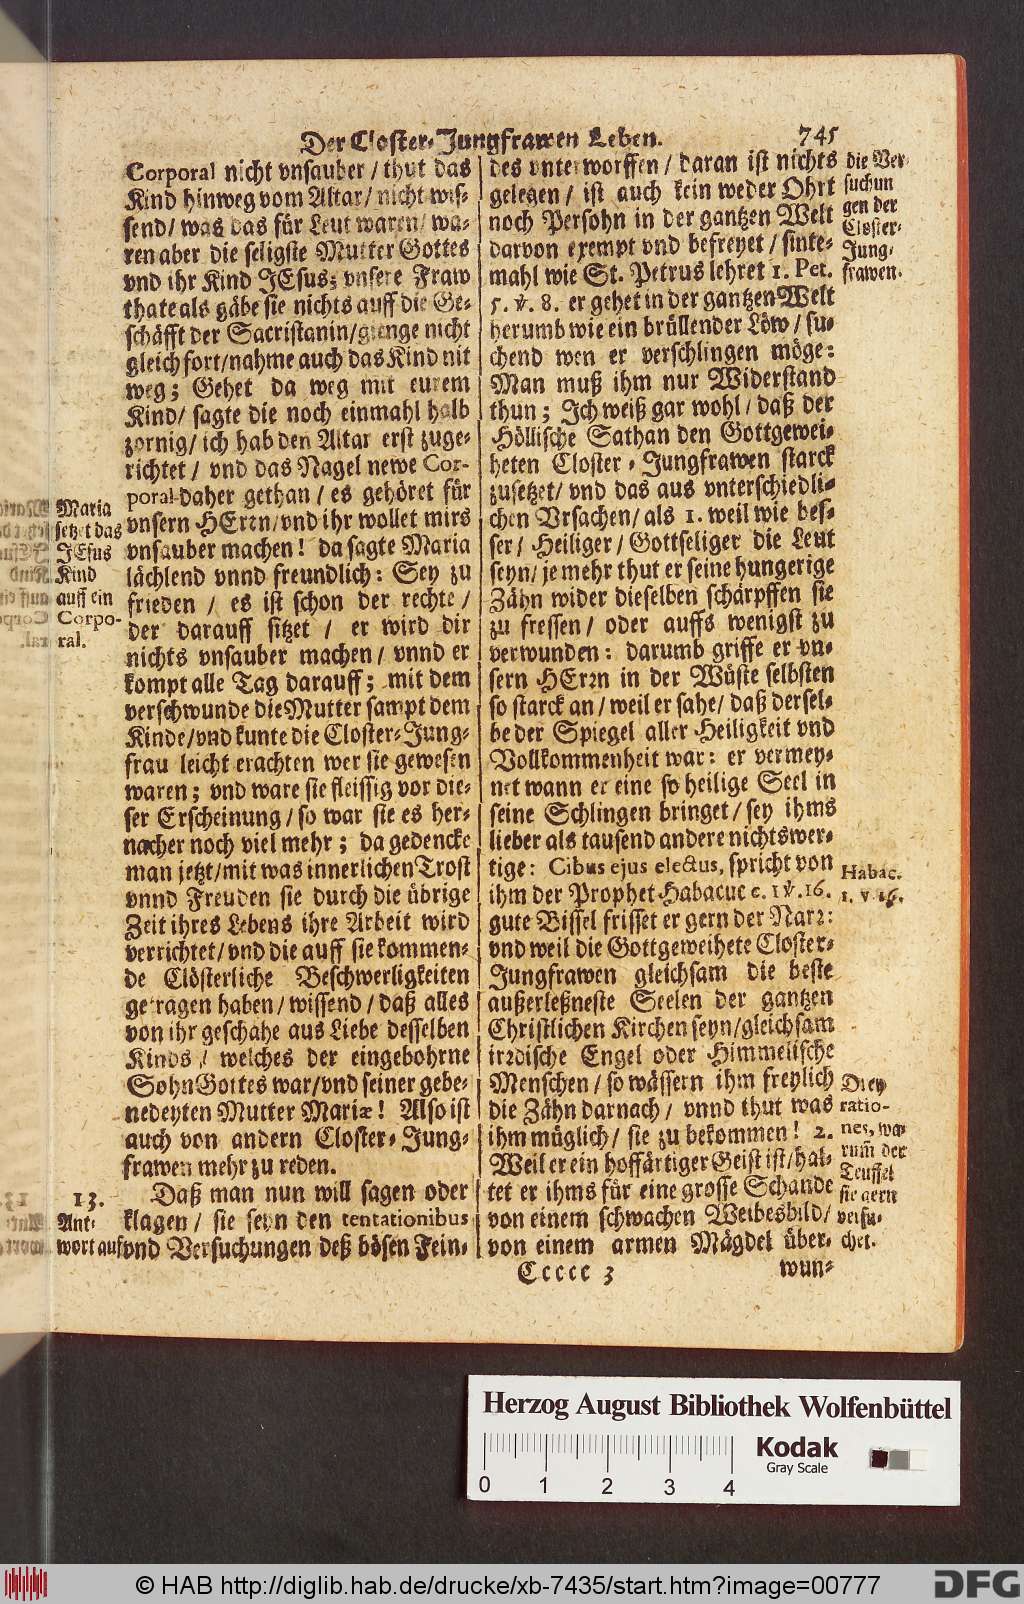 Der Closter-Jungfrawen Leben. 745
Corporal nicht vnsauber / thut das
Kind hinweg vom Altar / nicht wis-
send / was das für Leut waren / wa-
ren aber die seligste Mutter Gottes
vnd ihr Kind JEsus; vnsere Fraw
thate als gäbe sie nichts auff die Ge-
schäfft der Sacristanin / gienge nicht
gleich fort / nahme auch das Kind nit
weg; Gehet da weg mit eurem
Kind / sagte die noch einmahl halb
zornig / ich hab den Altar erst zuge-
richtet / vnd das Nagel newe Cor-
poral daher gethan / es gehöret für
vnsern HErrn / vnd ihr wollet mirs
vnsauber machen! da sagte Maria
lächlend vnnd freundlich: Sey zu
frieden / es ist schon der rechte /
der darauff sitzet / er wird dir
nichts vnsauber machen / vnnd er
kompt alle Tag darauff; mit dem
verschwunde die Mutter sampt dem
Kinde / vnd kunte die Closter-Jung-
frau leicht erachten wer sie gewesen
waren; vnd ware sie fleissig vor die-
ser Erscheinung / so war sie es her-
nacher noch viel mehr; da gedencke
man jetzt / mit was innerlichen Trost
vnnd Freuden sie durch die übrige
Zeit ihres Lebens ihre Arbeit wird
verrichtet / vnd die auff sie kommen-
de Clösterliche Beschwerligkeiten
getragen haben / wissend / daß alles
von ihr geschahe aus Liebe desselben
Kinds / welches der eingebohrne
Sohn Gottes war / vnd seiner gebe-
nedeyten Mutter Mariæ! Also ist
auch von andern Closter-Jung-
frawen mehr zu reden.
Daß man nun will sagen oder
klagen / sie seyn den tentationibus
vnd Versuchungen deß bösen Fein-
Maria
setzet das
JEsus
Kind
auff ein
Corpo-
ral.
13.
Ant-
wort auf
des vnterworffen / daran ist nichts
gelegen / ist auch kein weder Ohrt
noch Persohn in der gantzen Welt
darvon exempt vnd befreyet / sinte-
mahl wie St. Petrus lehret 1. Pet.
5. ℣. 8. er gehet in der gantzen Welt
herumb wie ein brüllender Löw / su-
chend wen er verschlingen möge:
Man muß ihm nur Widerstand
thun; Ich weiß gar wohl / daß der
Höllische Sathan den Gottgewei-
heten Closter-Jungfrawen starck
zusetzet / vnd das aus vnterschiedli-
chen Vrsachen / als 1. weil wie bes-
ser / Heiliger / Gottseliger die Leut
seyn / je mehr thut er seine hungerige
Zähn wider dieselben schärpffen sie
zu fressen / oder auffs wenigst zu
verwunden: darumb griffe er vn-
sern HErrn in der Wüste selbsten
so starck an / weil er sahe / daß dersel-
be der Spiegel aller Heiligkeit vnd
Vollkommenheit war: er vermey-
net wann er eine so heilige Seel in
seine Schlingen bringet / sey ihms
lieber als tausend andere nichtswer-
tige: Cibus ejus electus, spricht von
ihm der Prophet Habacuc c. 1 ℣. 16.
gute Bissel frisset er gern der Narr:
vnd weil die Gottgeweihete Closter-
Jungfrawen gleichsam die beste
außerleßneste Seelen der gantzen
Christlichen Kirchen seyn / gleichsam
irrdische Engel oder Himmelische
Menschen / so wässern ihm freylich
die Zähn darnach / vnnd thut was
ihm müglich / sie zu bekommen! 2.
Weil er ein hoffärtiger Geist ist / hal-
tet er ihms für eine grosse Schande
von einem schwachen Weibesbild /
von einem armen Mägdel über-
die Ver-
suchun
gen der
Closter-
Jung-
frawen.
Habac.
1. v. 16.
Drey
ratio-
nes, wa-
rum der
Teuffel
sie gern
versu-
chet.
Ccccc 3 wun-
Herzog August Bibliothek Wolfenbüttel
0 1 2 3 4
Kodak
Gray Scale
© HAB http://diglib.hab.de/drucke/xb-7435/start.htm?image=00777
DFG